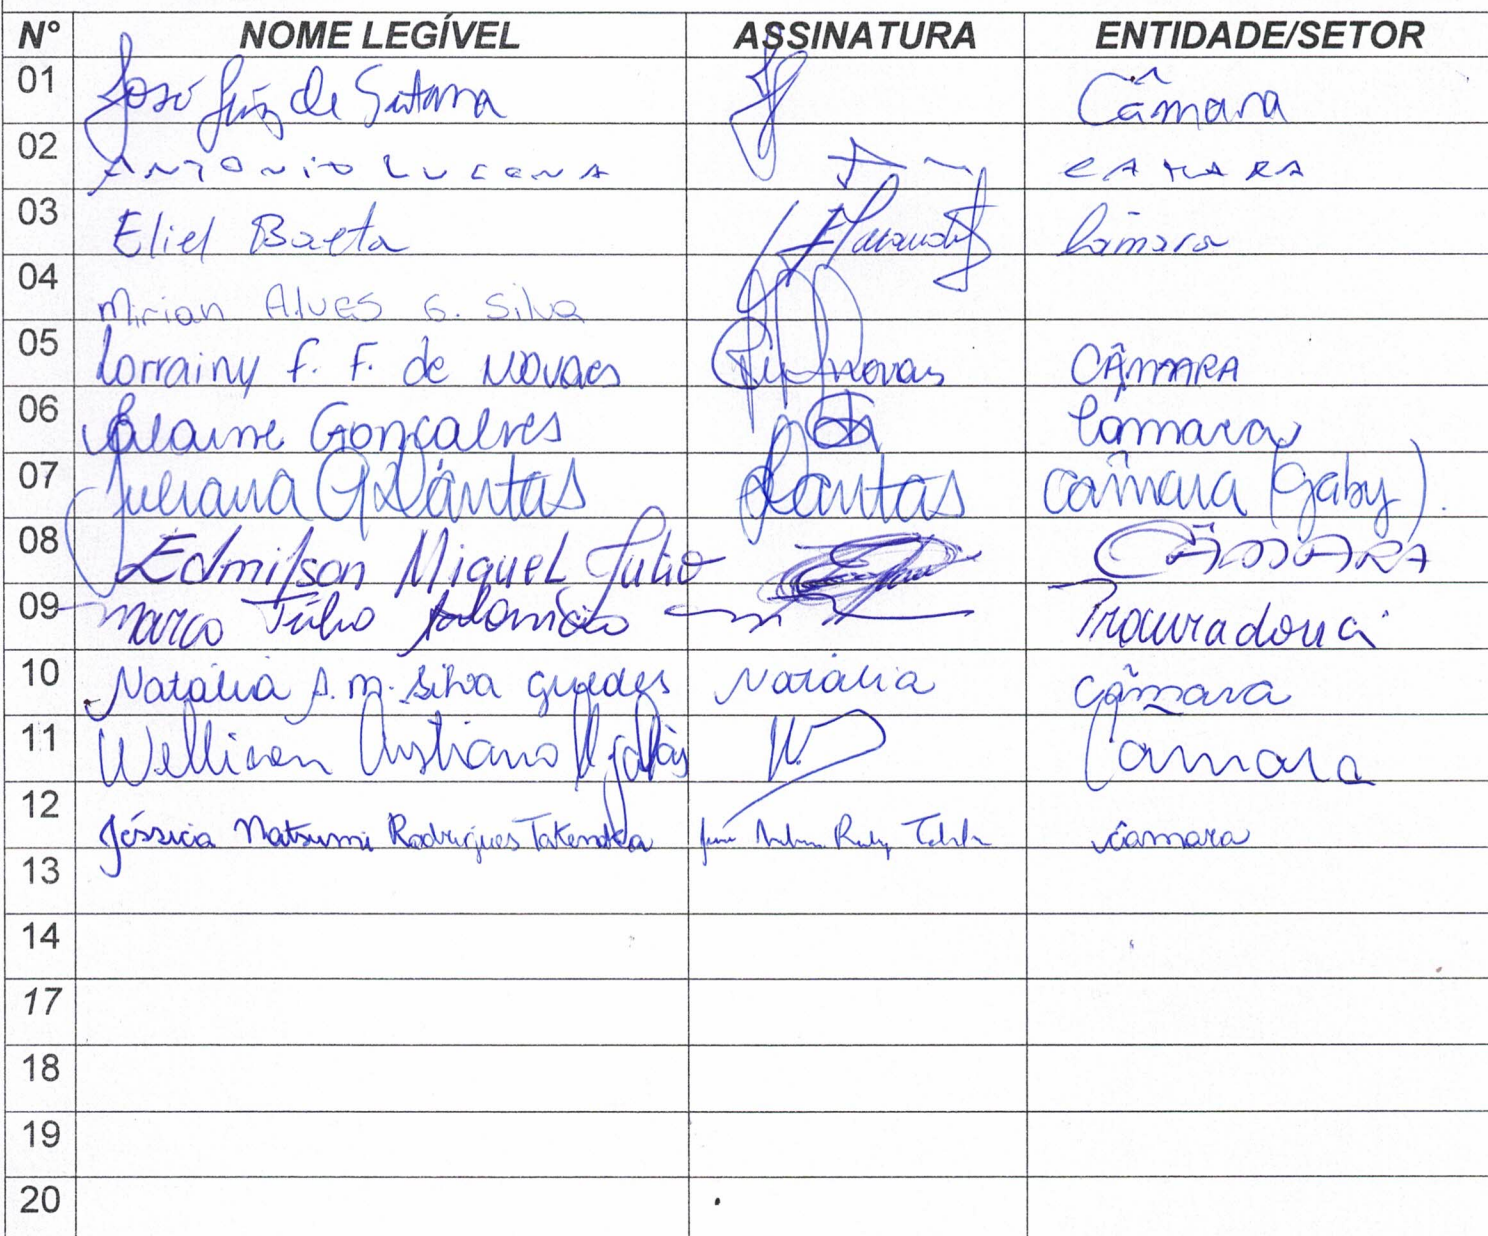 Nº NOME LEGÍVEL ASSINATURA ENTIDADE/SETOR
01 José Luiz de Santana Câmara
02 ANTONIO LUCENA CAMARA
03 Eliel Baeta Câmara
04 Mirian Alves G. Silva
05 Lorrainy F. F. de Novaes CÂMARA
06 Gonçalves Câmara
07 Juliana G Dantas Dantas Câmara (Gaby).
08 Edmilson Miguel Julio CÂMARA
09 Marco Túlio Procuradoria
10 Natália A. M. Silva Guedes Natália Câmara
11 Cristiano Câmara
12 Jéssica Natsumi Rodrigues Câmara
13
14
17
18
19
20